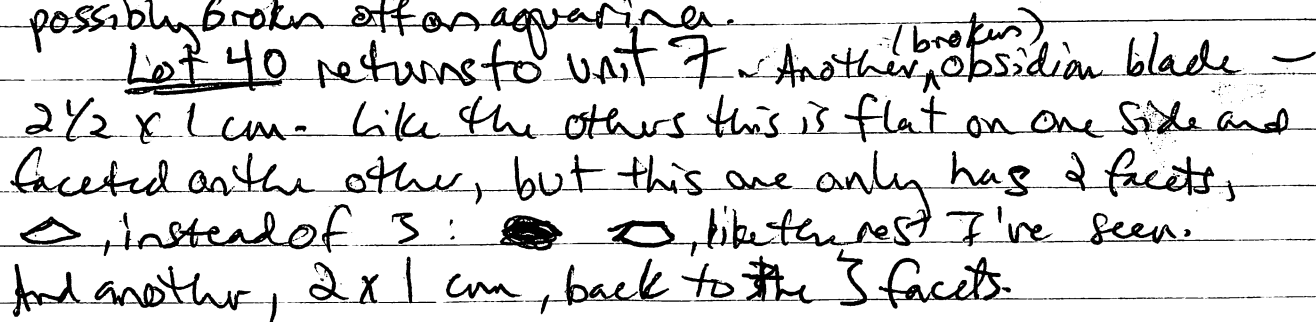 possibly broken off on aquarina.
Lot 40 returns to unit 7. Another (broken) obsidian blade –
2 1/2 x 1 cm. Like the others this is flat on one side and
faceted on the other, but this one only has 2 facets,
, instead of 3: , like the rest I've seen.
And another, 2 x 1 cm, back to the 3 facets.